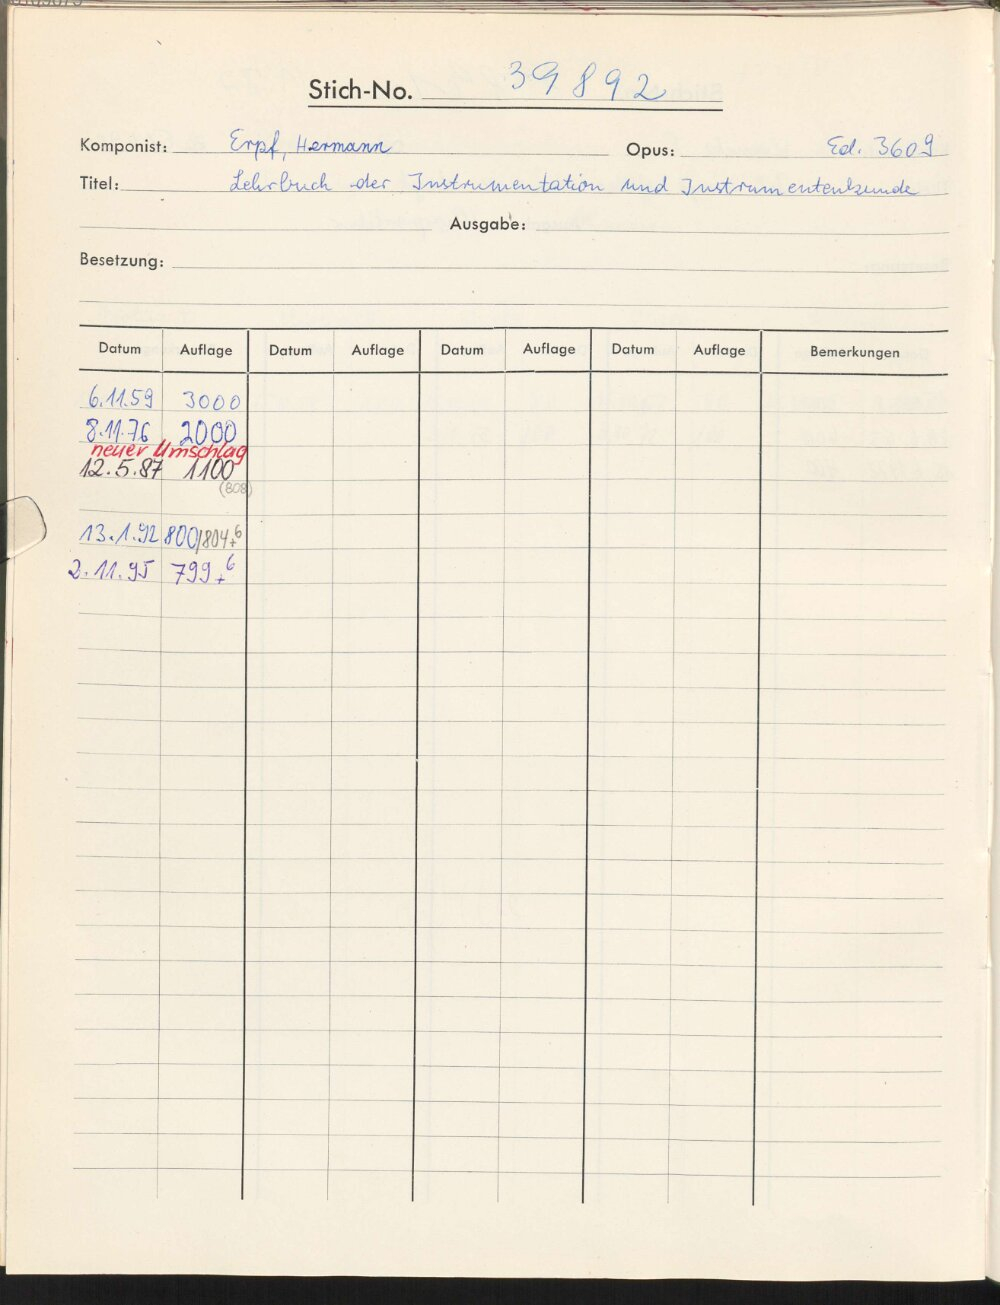 Stich-No. 39892
Komponist: Erpf, Hermann Opus: Ed. 3609
Titel: Lehrbuch der Instrumentation und Instrumentenkunde
Ausgabe:
Besetzung:
Datum Auflage Datum Auflage Datum Auflage Datum Auflage Bemerkungen
6.11.59 3000
8.11.76 2000
neuer Umschlag
12.5.87 1100
(808)
13.1.92 800/804+6
2.11.95 799+6